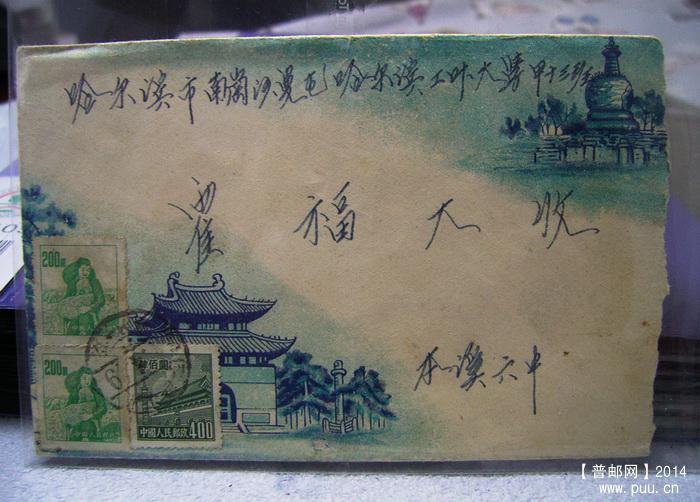 哈尔滨市南岗沙曼屯哈尔滨工业大学甲十三班
霍福大收
本溪六中
200圆
200圆
肆佰圆
中國人民郵政400
【普邮网】2014
www.puu.cn